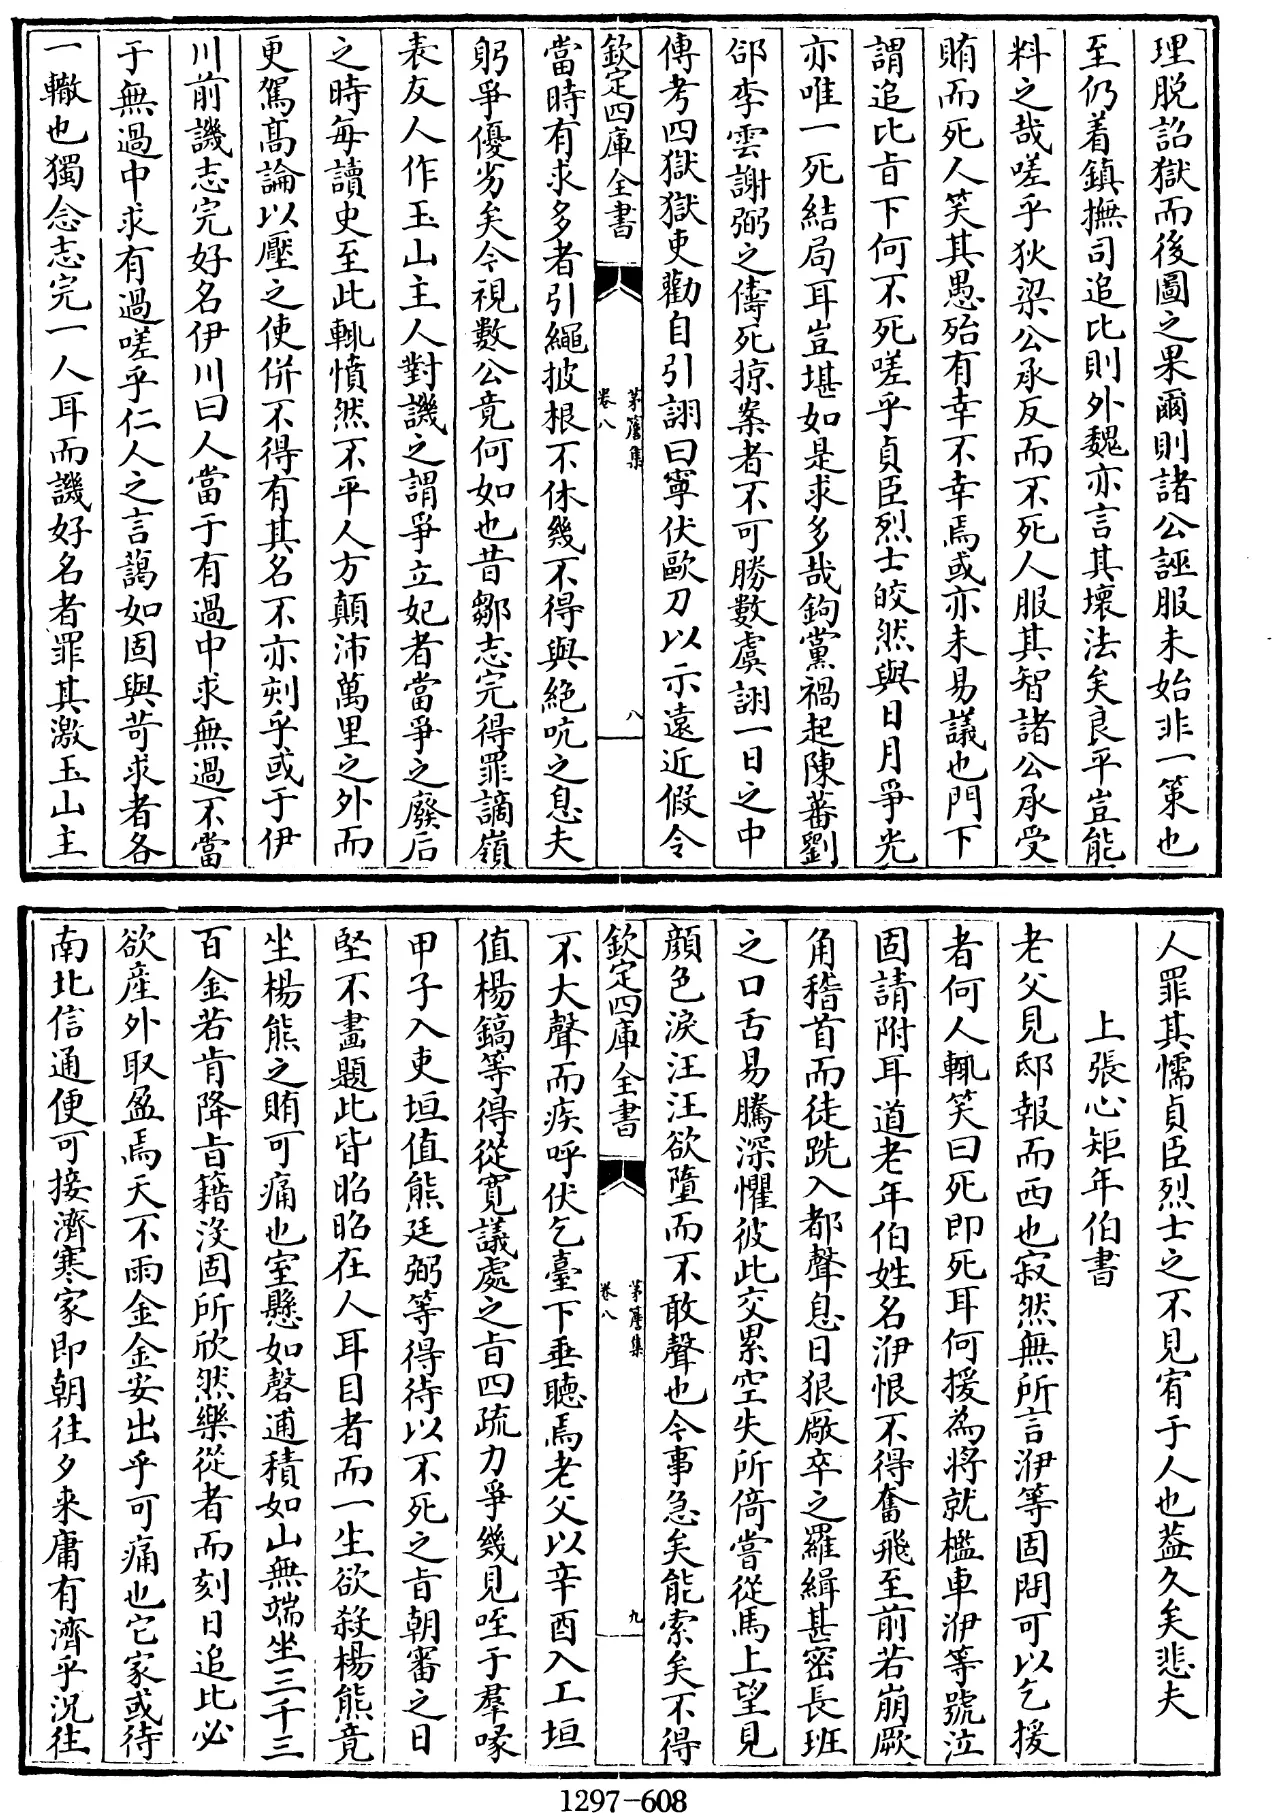 理脱詔獄而後圖之果爾則諸公誣服未始非一策也
至仍着鎮撫司追比則外魏亦言其壞法矣良平豈能
料之哉嗟乎狄梁公承反而不死人服其智諸公承受
賄而死人笑其愚殆有幸不幸焉或亦未易議也門下
謂追比㫖下何不死嗟乎貞臣烈士皎然與日月爭光
亦唯一死結局耳豈堪如是求多哉鉤黨禍起陳蕃劉
郃李雲謝弼之儔死掠案者不可勝數虞詡一日之中
傳考四獄獄吏勸自引詡曰寧伏歐刀以示遠近假令
欽定四庫全書
茅簷集
卷八
八
當時有求多者引繩披根不休幾不得與絶吭之息夫
躬爭優劣矣今視數公竟何如也昔鄒志完得罪謫嶺
表友人作玉山主人對譏之謂爭立妃者當爭之廢后
之時每讀史至此輒憤然不平人方顛沛萬里之外而
更駕髙論以壓之使併不得有其名不亦刻乎或于伊
川前譏志完好名伊川曰人當于有過中求無過不當
于無過中求有過嗟乎仁人之言藹如固與苛求者各
一轍也獨念志完一人耳而譏好名者罪其激玉山主
人罪其懦貞臣烈士之不見宥于人也葢久矣悲夫
上張心矩年伯書
老父見邸報而西也寂然無所言洢等固問可以乞援
者何人輒笑曰死即死耳何援為將就檻車洢等號泣
固請附耳道老年伯姓名洢恨不得奮飛至前若崩厥
角稽首而徒跣入都聲息日狠厰卒之羅緝甚密長班
之口舌易騰深懼彼此交累空失所倚嘗從馬上望見
顔色淚汪汪欲墮而不敢聲也今事急矣能索矣不得
欽定四庫全書
茅簷集
卷八
九
不大聲而疾呼伏乞臺下垂聽焉老父以辛酉入工垣
值楊鎬等得從寛議處之㫖四疏力爭幾見咥于羣喙
甲子入吏垣值熊廷弼等得待以不死之㫖朝審之日
堅不畫題此皆昭昭在人耳目者而一生欲殺楊熊竟
坐楊熊之賄可痛也室懸如磬逋積如山無端坐三千三
百金若肯降㫖籍沒固所欣然樂從者而刻日追比必
欲産外取盈焉天不雨金金安出乎可痛也它家或待
南北信通便可接濟寒家即朝往夕来庸有濟乎況往
1297-608